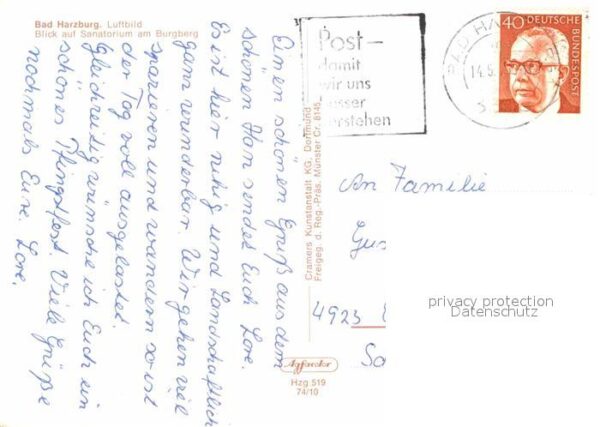 Bad Harzburg. Luftbild
Blick auf Sanatorium am Burgberg
Einen schönen Gruß aus dem
schönen Harz sendet Euch Lore.
Es ist hier ruhig und Landschaftlich
ganz wunderbar. Wir gehen viel
spazieren und wandern so ist
der Tag voll ausgelastet.
Gleichzeitig wünsche ich Euch ein
schönes Pfingstfest. Viele Grüße
nochmals Eure Lore.
Cramers Kunstanstalt KG, Dortmund
Freigeg. d. Reg.-Präs. Münster Cr. 8145
Agfacolor
Hzg 519
74/10
Post-
damit
wir uns
besser
verstehen
BAD HA
14.5.
40
DEUTSCHE
BUNDESPOST
An Familie
Gus
4923
privacy protection
Datenschutz